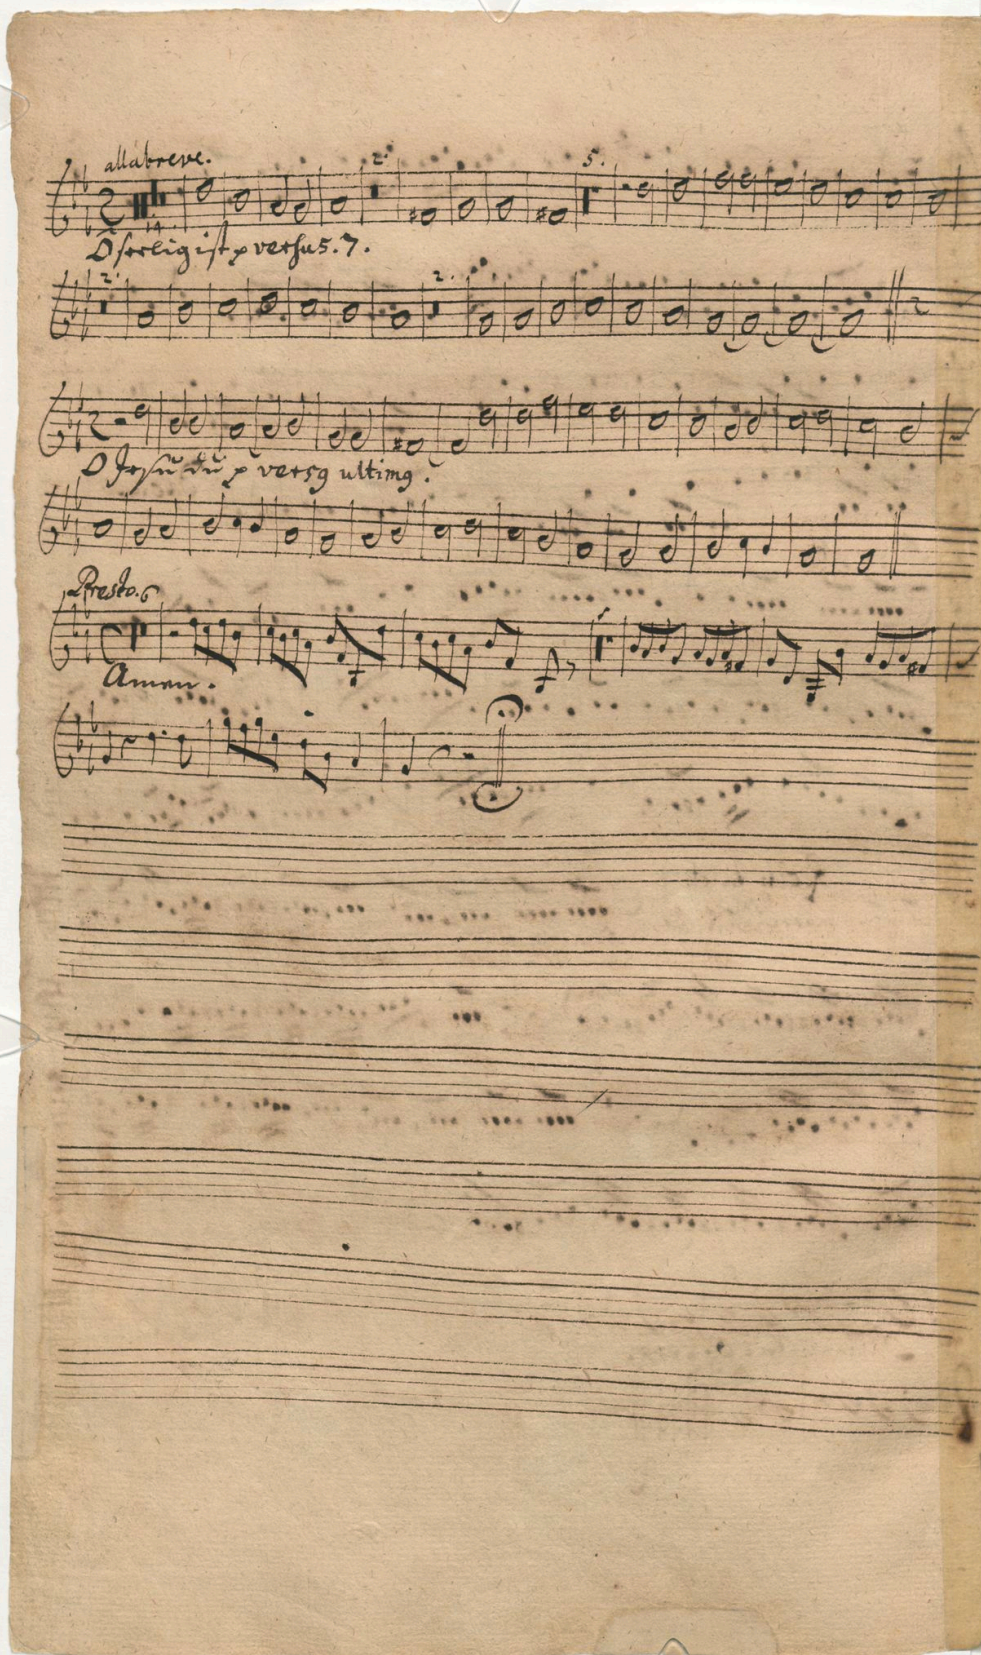 allabreve.
2.
5.
14.
O seelig ist p versus. 5. 7.
2.
2.
O Jesu du p versg ultimg.
Presto. 6
Amen.